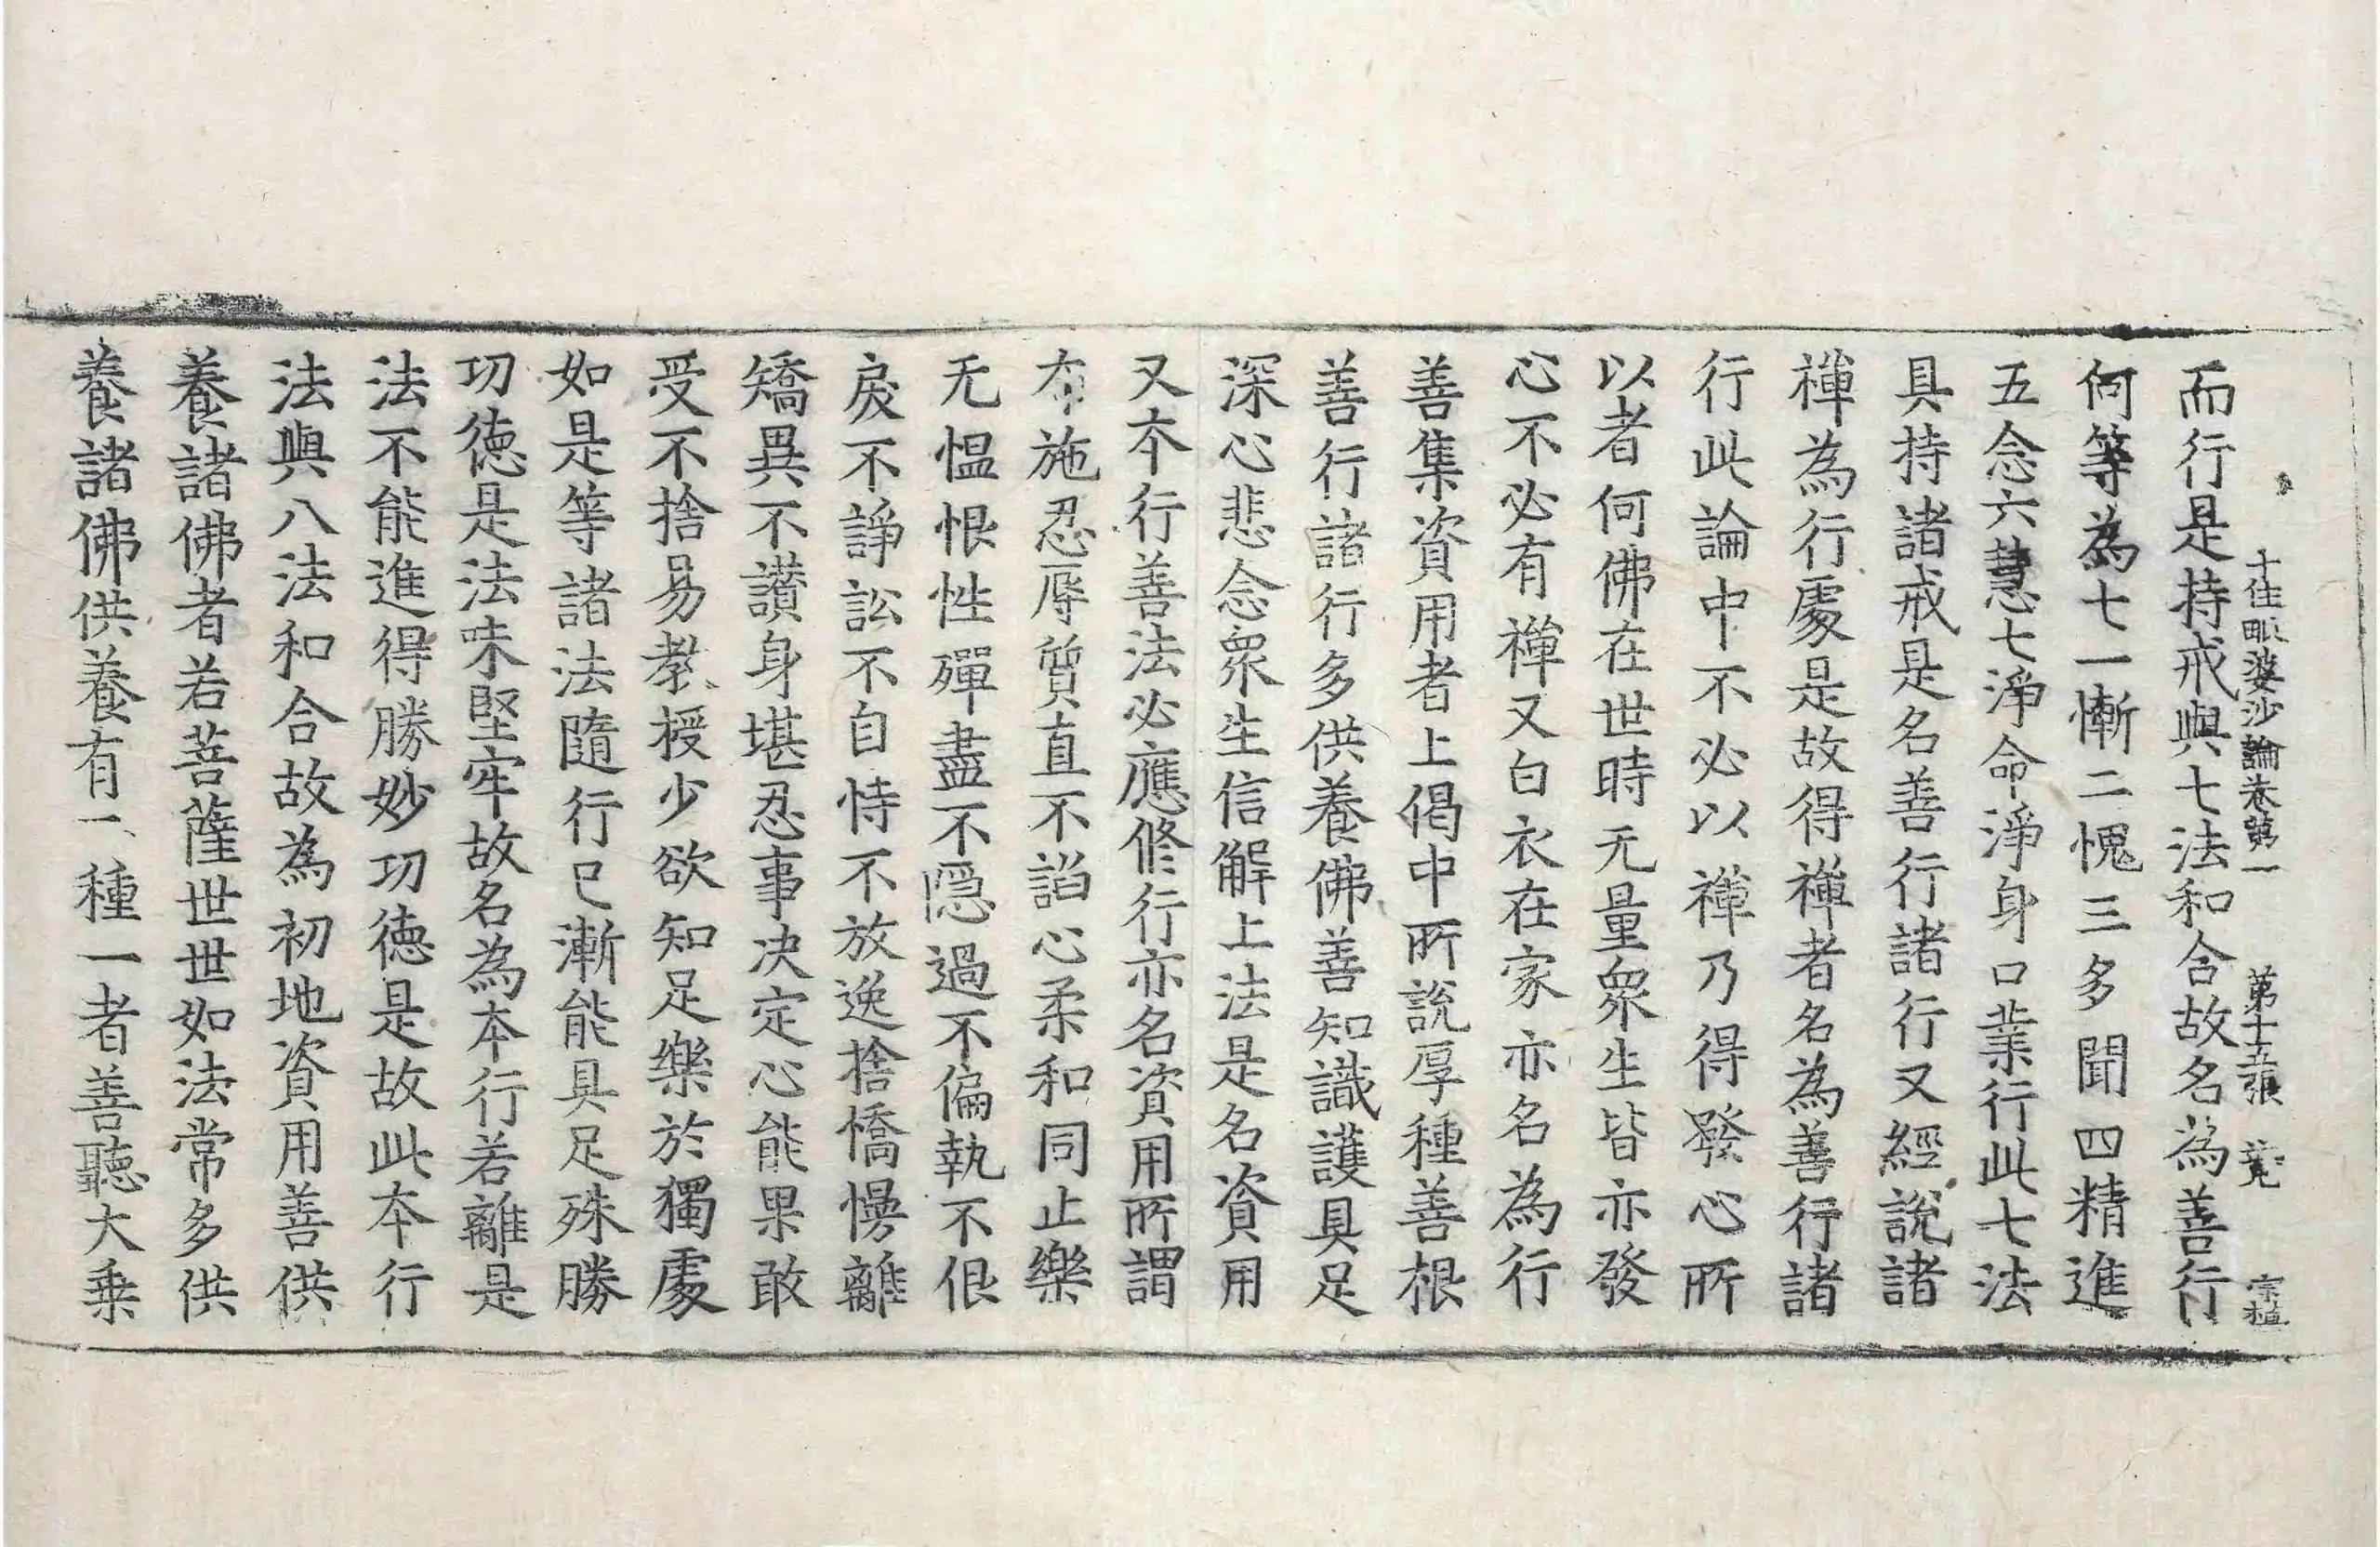 十住毗婆沙論卷第一 第十五張 競 宗植
而行是持戒與七法和合故名為善行
何等為七一慚二愧三多聞四精進
五念六慧七淨命淨身口業行此七法
具持諸戒是名善行諸行又經說諸
禪為行處是故得禪者名為善行諸
行此論中不必以禪乃得發心所
以者何佛在世時无量衆生皆亦發
心不必有禪又白衣在家亦名為行
善集資用者上偈中所說厚種善根
善行諸行多供養佛善知識護具足
深心悲念衆生信解上法是名資用
又本行善法必應修行亦名資用所謂
布施忍辱質直不諂心柔和同止樂
无慍恨性殫盡不隱過不偏執不佷
戾不諍訟不自恃不放逸捨憍慢離
矯異不讃身堪忍事决定心能果敢
受不捨易教授少欲知足樂於獨處
如是等諸法隨行已漸能具足殊勝
功德是法味堅牢故名為本行若離是
法不能進得勝妙功德是故此本行
法與八法和合故為初地資用善供
養諸佛者若菩薩世世如法常多供
養諸佛供養有二種一者善聽大乗